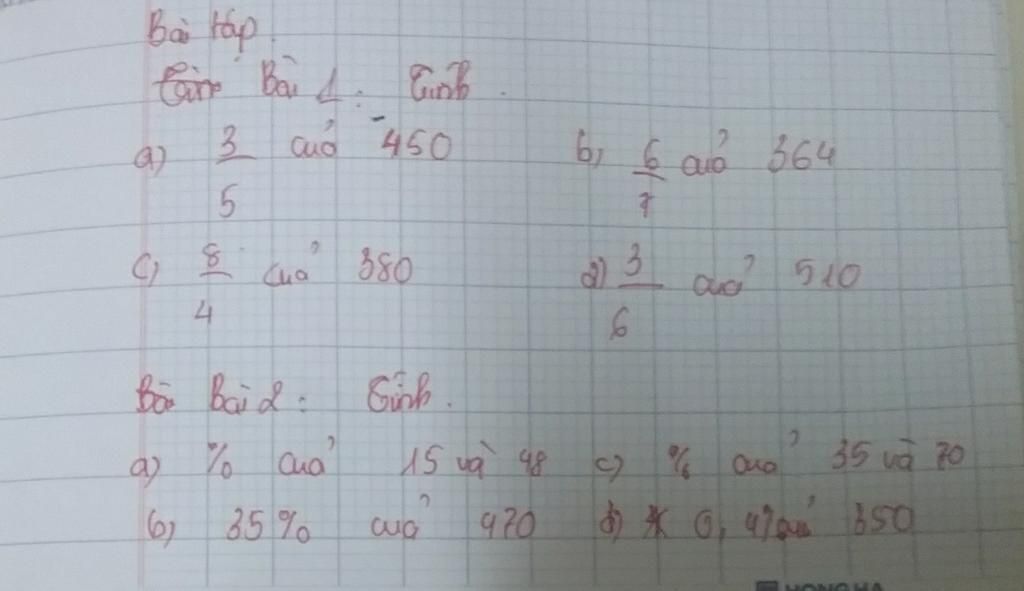 Bài tập.
Bài 1: Tính.
a) 3/5 của 450 b) 6/7 của 364
c) 8/4 của 380 d) 3/6 của 510
Bài 2: Tính.
a) % của 15 và 48 c) % của 35 và 70
b) 35% của 470 d) 0,4% của 350
HONG HA